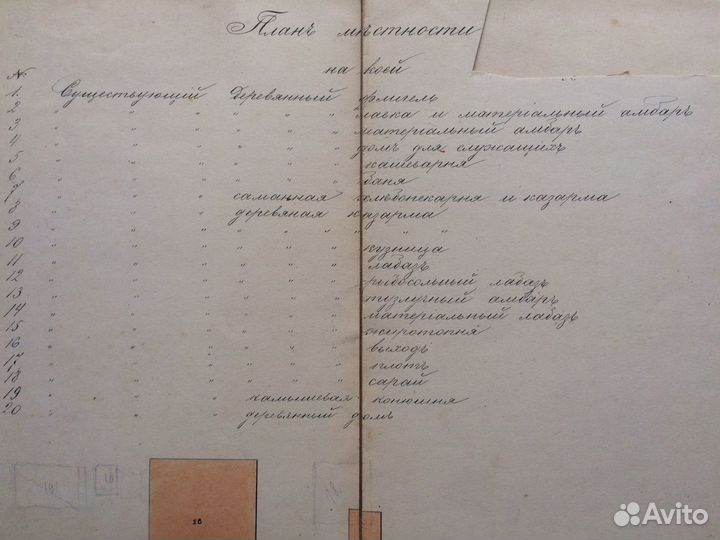 Планъ мѣстности
на коей
№
1. Существующій Деревянный флигель
2 " " " " " лавка и матеріальный амбаръ
3 " " " " " матеріальный амбаръ
4. " " " " " домъ для служащихъ
5 " " " " " кашеварня
6 " " " " " баня
7 " " " саманная хлѣбопекарня и казарма
8 " " " деревяная казарма
9 " " " " " " " "
10 " " " " " кузница
11 " " " " " лабазъ
12 " " " " " рыбосольный лабазъ
13 " " " " " тузлучный амбаръ
14 " " " " " матеріальный лабазъ
15 " " " " " жиротопня
16 " " " " " выходъ
17 " " " " " плотъ
18 " " " " " сарай
19 " " " камышевая конюшня
20 " " " деревянный домъ
19 18 16 18
Avito